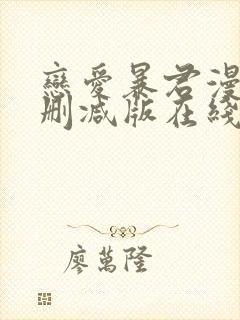 戀愛暴君漫
刪减版在綫
廖萬隆